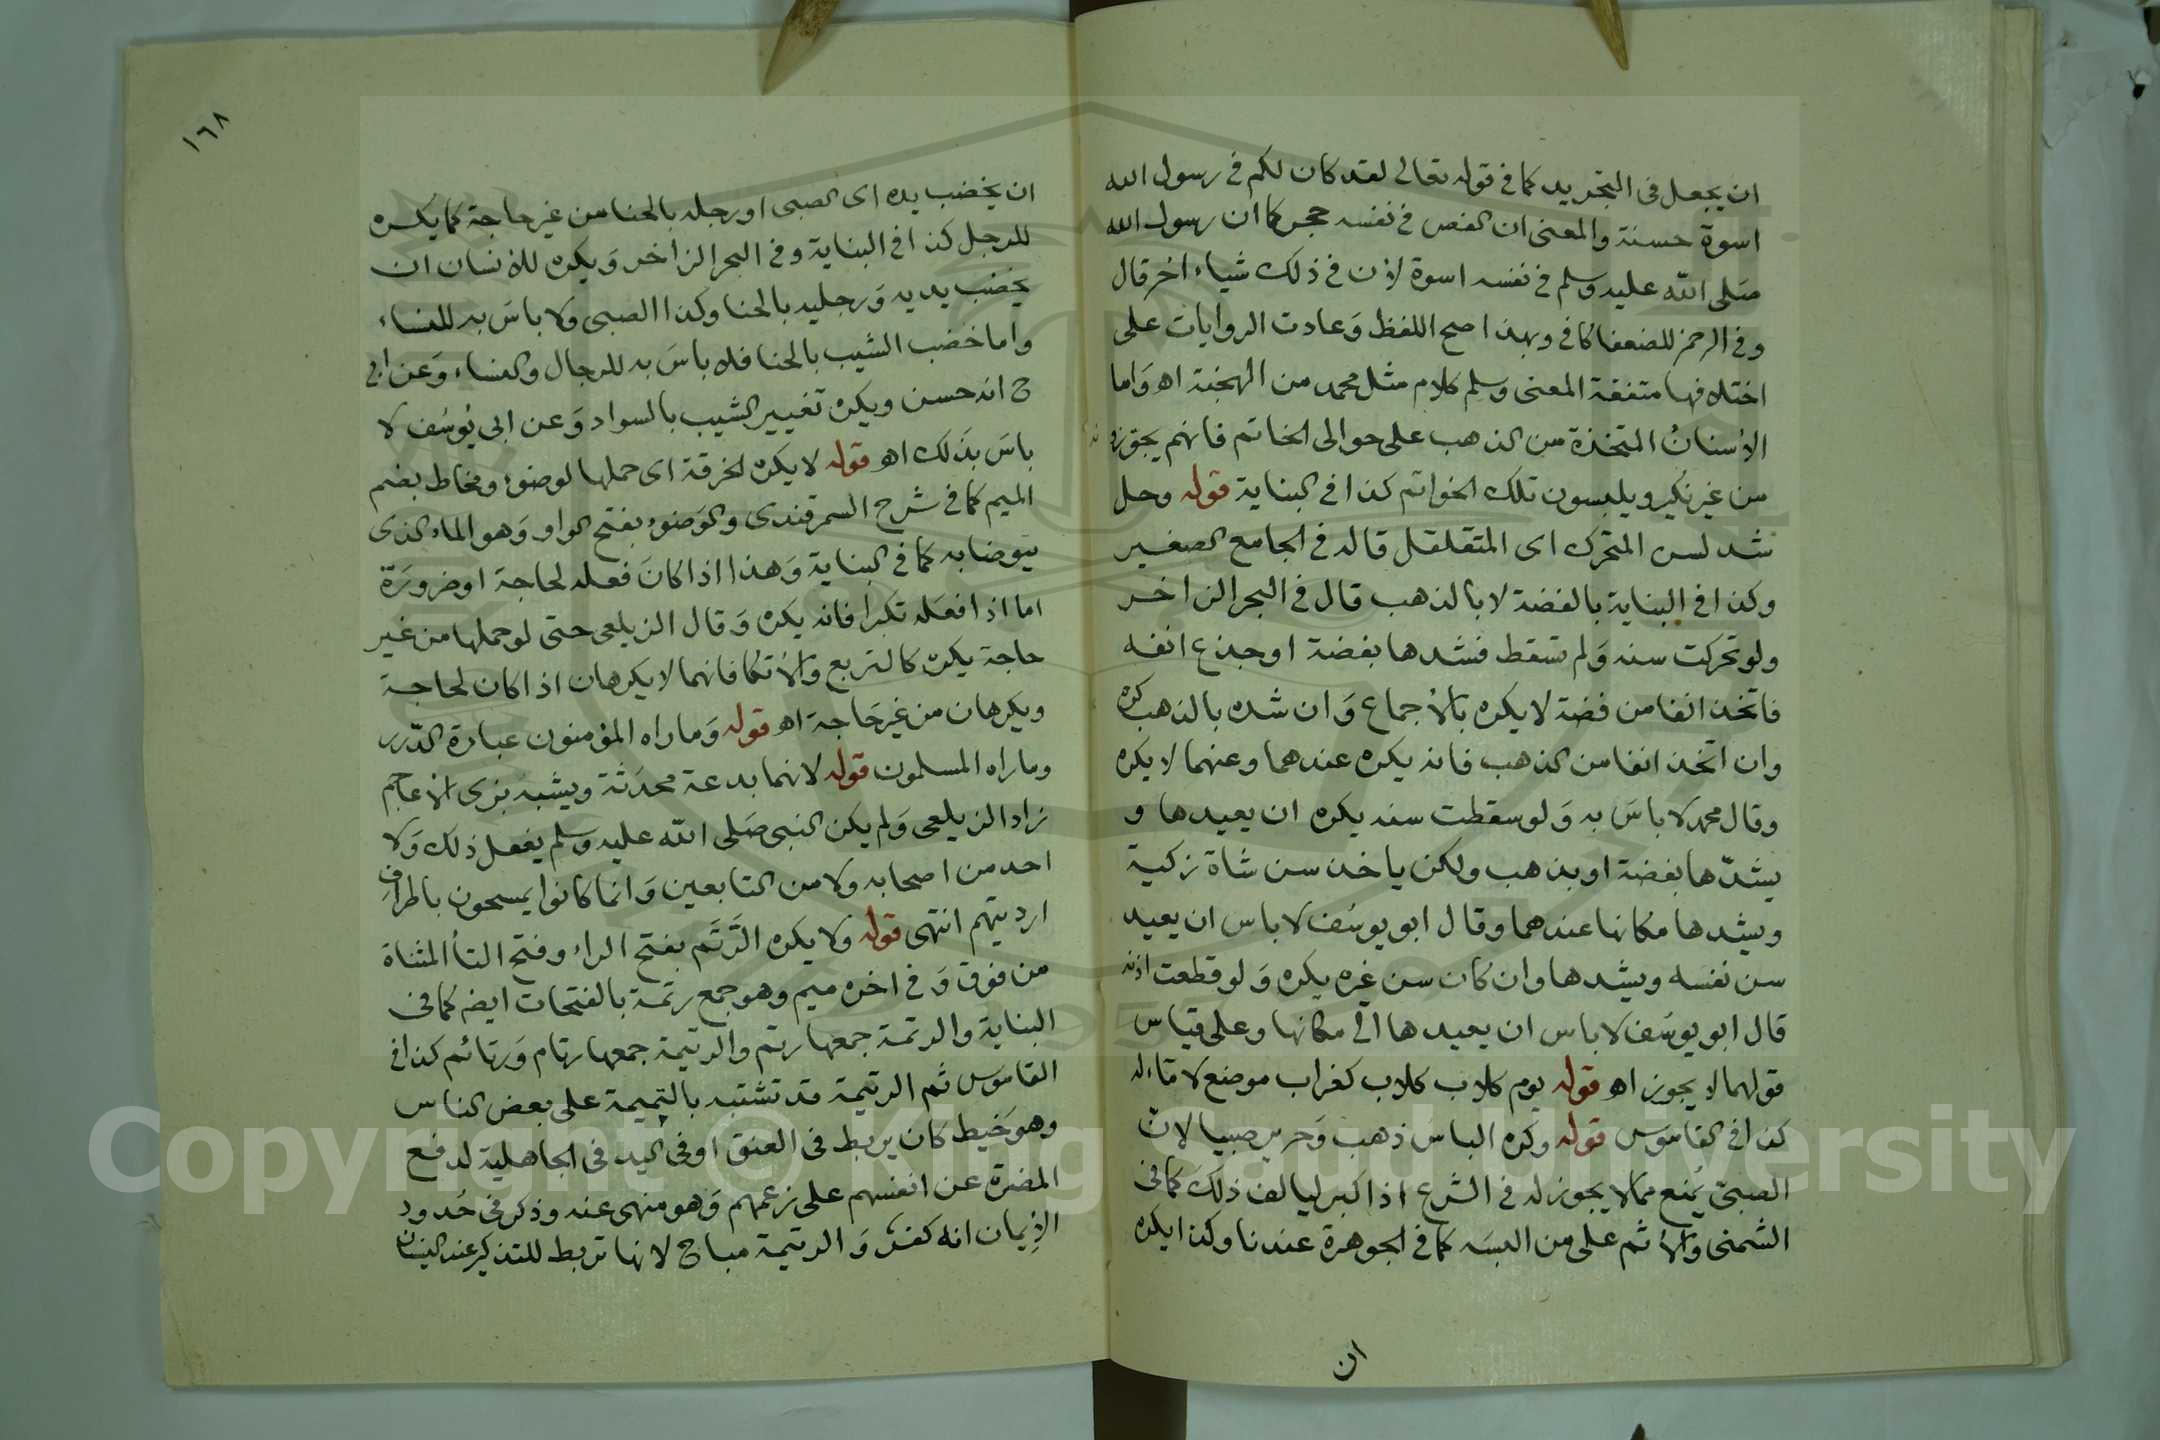 ان يجعل فى التجريد كما فى قوله تعالى لقد كان لكم فى رسول الله
اسوة حسنة والمعنى ان الفص فى نفسه حجر كما ان رسول الله
صلى الله عليه وسلم فى نفسه اسوة لان فى ذلك شياء اخر قال
وفى الرحمن للضعفا كافى وبهذا صح اللفظ وعادت الروايات على
اختلافها متفقة المعنى وسلم كلام مثل محمد من الهجنة اه واما
الاسنان المتخذة من الذهب على حوالى الخاتم فانهم يجوزونه
من غير نكير ويلبسون تلك الخواتم كذا فى البناية قوله وحل
شد لسن المتحرك اى المتقلقل قاله فى الجامع الصغير
وكذا فى البناية بالفضة لا بالذهب قال فى البحر الزاخر
ولو تحركت سنه ولم تسقط فشدها بفضة او جذع انفه
فاتخذ انفا من فضة لا يكره بالاجماع وان شده بالذهب كره
وان اتخذ انفا من الذهب فانه يكره عندهما وعنهما لا يكره
وقال محمد لا باس به ولو سقطت سنه يكره ان يعيدها و
يشدها بفضة او بذهب ولكن ياخذ سن شاة زكية
ويشدها مكانها عندهما وقال ابو يوسف لا باس ان يعيد
سن نفسه ويشدها وان كان سن غيره يكره ولو قطعت اذنه
قال ابو يوسف لا باس ان يعيدها الى مكانها وعلى قياس
قولهما لا يجوز اه قوله يوم كلاب كلاب كغراب موضع لا قاله
كذا فى القاموس قوله وكره الباس ذهب وحرير صبيا لان
الصبى يمنع مما لا يجوز له فى الشرع اذا كبر ليالف ذلك كما فى
الشمنى والاثم على من البسه كما فى الجوهرة عندنا وكذا يكره
ان
١٦٨
ان يخضب يده اى الصبى او رجله بالحنا من غير حاجة كما يكره
للرجل كذا فى البناية وفى البحر الزاخر ويكره للانسان ان
يخضب يديه ورجليه بالحنا وكذا الصبى ولا باس به للنساء
واما خضب الشيب بالحنا فلا باس به للرجال والنساء وعن ابى
ح انه حسن ويكره تغيير الشيب بالسواد وعن ابى يوسف لا
باس بذلك اه قوله لا يكره لخرقة اى حملها لوضوء ومخاط بضم
الميم كما فى شرح السمرقندى والوضوء بفتح الواو وهو الماء الذى
يتوضا به كما فى البناية وهذا اذا كان فعله لحاجة او ضرورة
اما اذا فعله تكبرا فانه يكره وقال الزيلعى حتى لو حملها من غير
حاجة يكره كالتربع والاتكا فانهما لا يكرهان اذا كان لحاجة
ويكرهان من غير حاجة اه قوله وما راه المؤمنون عبارة الدرر
وما راه المسلمون قوله لانهما بدعة محدثة ويشبه بزى الاعاجم
زاد الزيلعى ولم يكن النبى صلى الله عليه وسلم يفعل ذلك ولا
احد من اصحابه ولا من التابعين وانما كانوا يمسحون باطراف
ارديتهم انتهى قوله ولا يكره الرتم بفتح الراء وفتح التا المثناة
من فوق وفى اخره ميم وهو جمع رتمة بالفتحات ايضه كما فى
البناية والرتمة جمعها رتم والرتيمة جمعها رتام ورتائم كذا فى
القاموس ثم الرتيمة قد تشتبه بالتميمة على بعض الناس
وهو خيط كان يربط فى العنق او فى اليد فى الجاهلية لدفع
المضرة عن انفسهم على زعمهم وهو منهى عنه وذكر فى حدود
الايمان انه كفر والرتيمة مباح لانها تربط للتذكير عند النسيان
Copyright © King Saud University